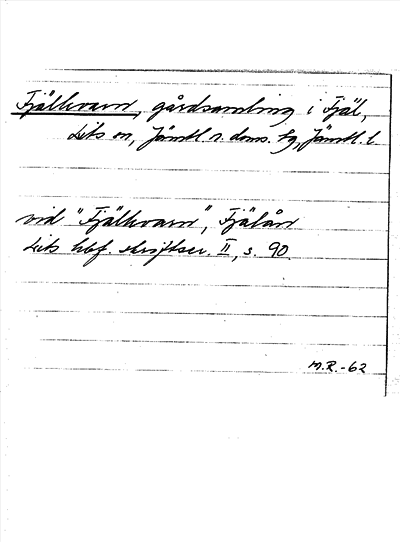 Fjälkvarn, gårdsamling i Fjäl,
Lits sn, Jämtl. n. doms. tg, Jämtl. l.
vid "Fjälkvarn", Fjälån
Lits hbf. skriftser. II, s. 90
M.R.-62